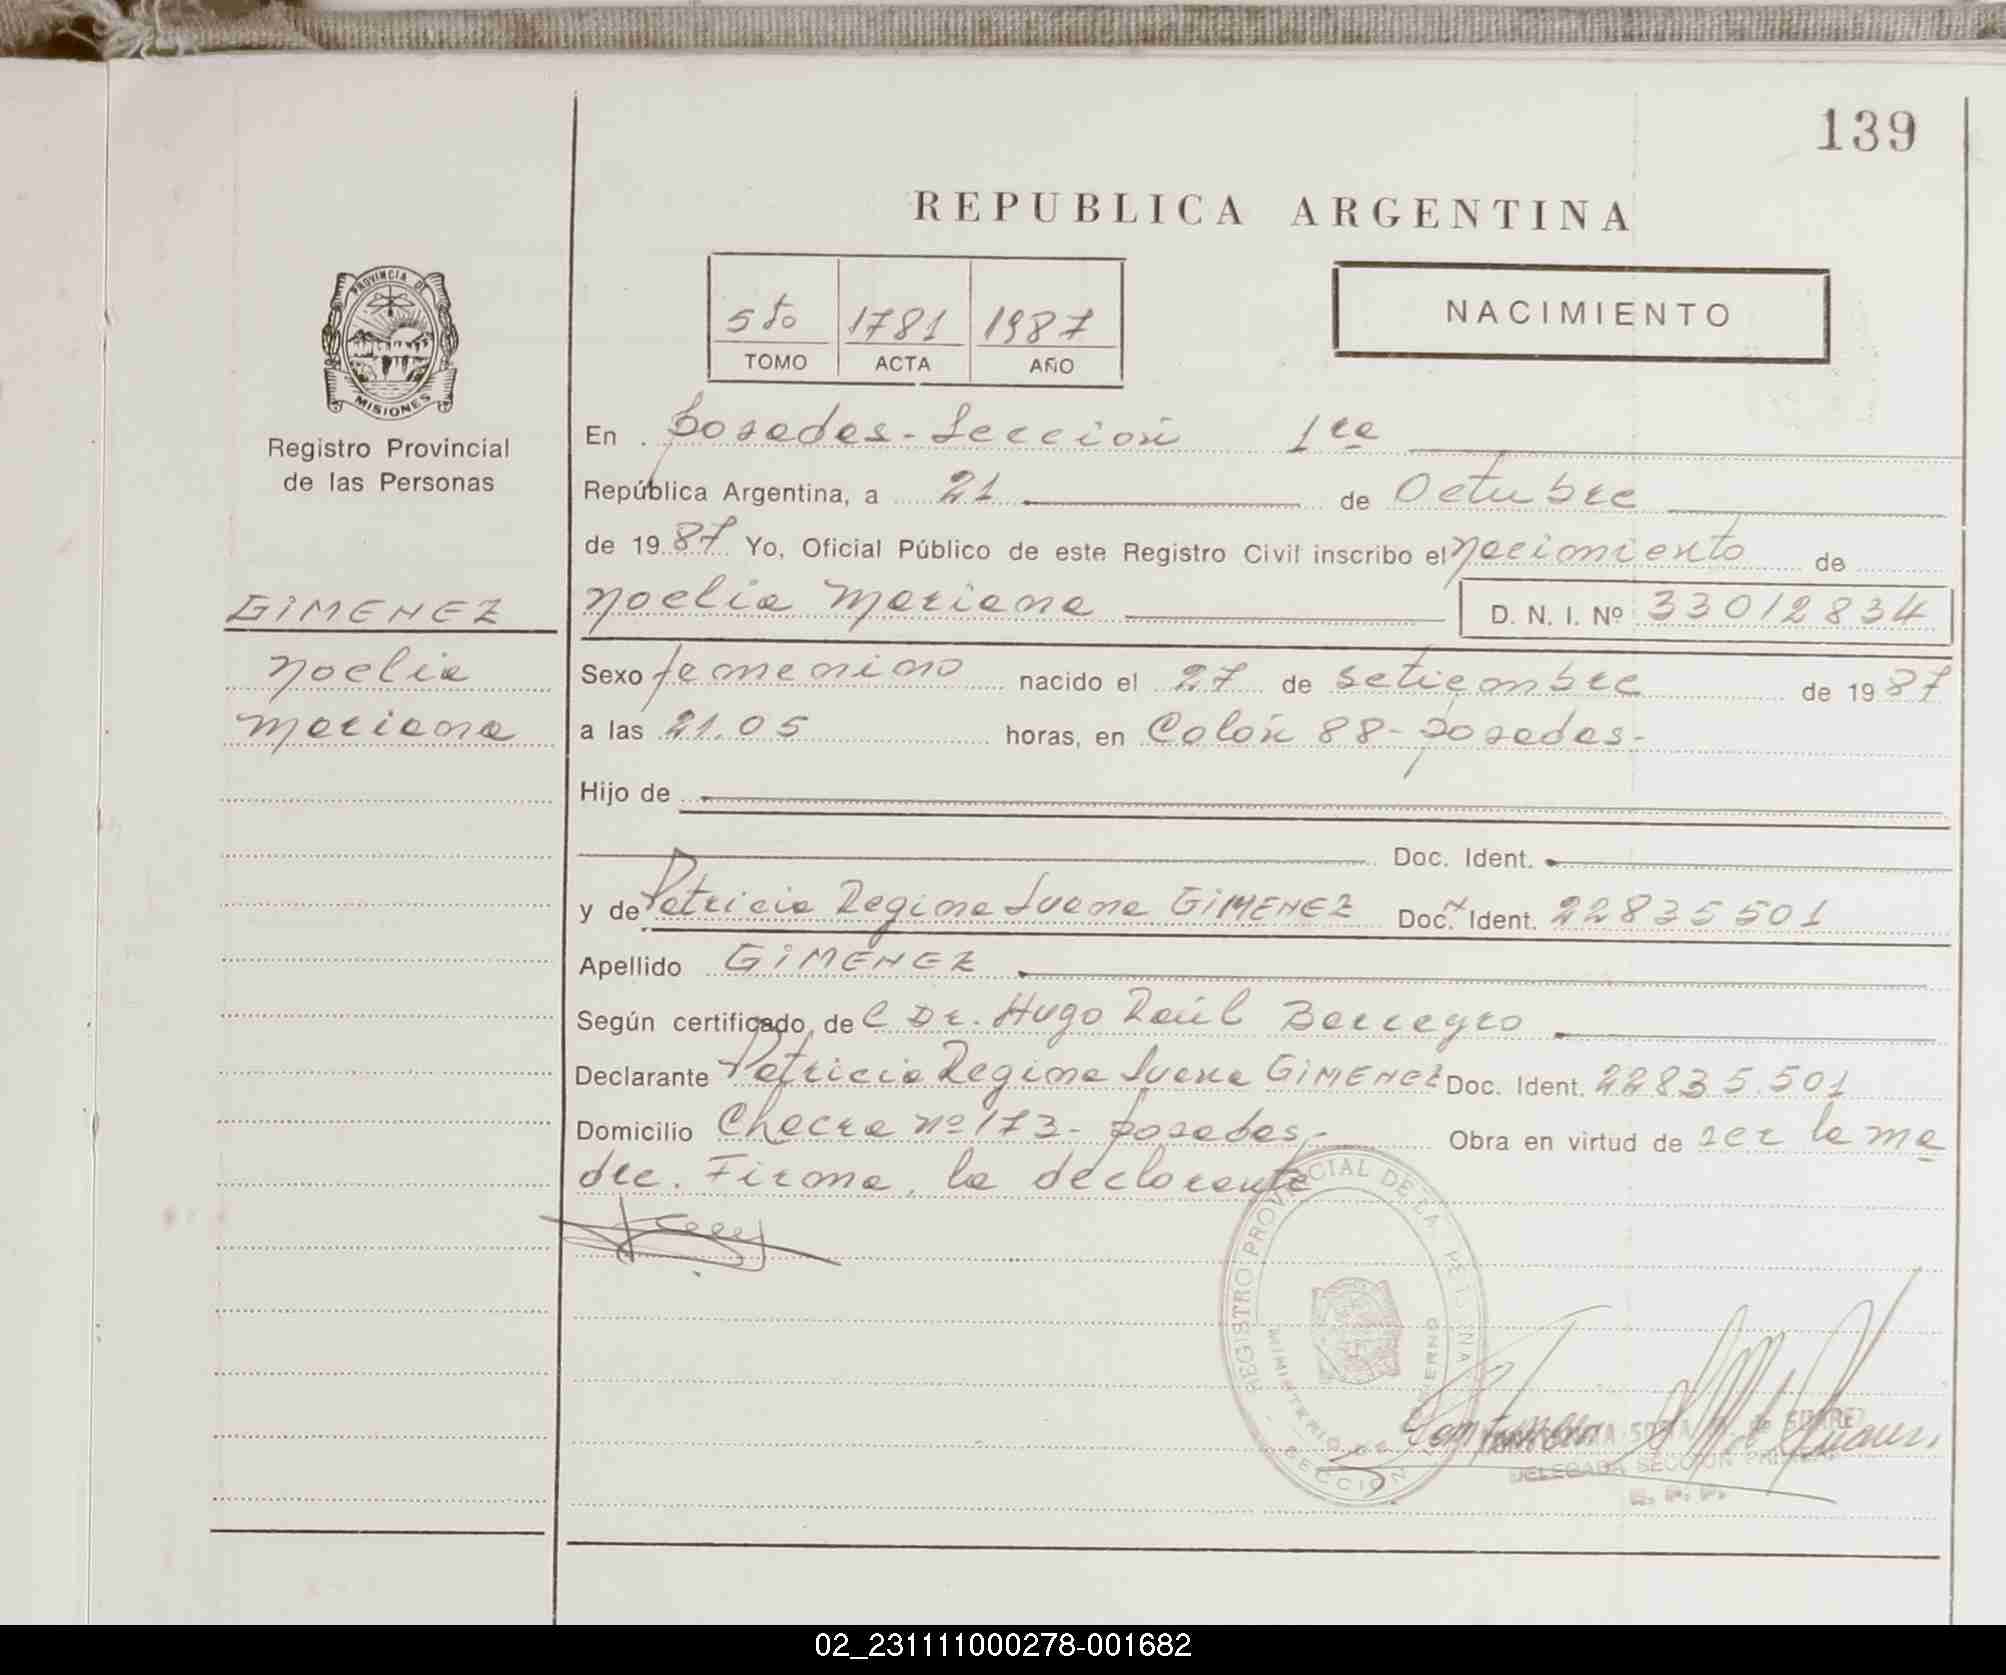 139
REPUBLICA ARGENTINA
5to 1781 1987
TOMO ACTA AÑO
NACIMIENTO
PROVINCIA DE
MISIONES
Registro Provincial
de las Personas
GIMENEZ
Noelia
Mariana
En Posadas - Sección 1ra
República Argentina, a 21 de Octubre
de 1987 Yo, Oficial Público de este Registro Civil inscribo el nacimiento de
Noelia Mariana D. N. I. Nº 33012834
Sexo femenino nacido el 27 de setiembre de 1987
a las 21.05 horas, en Colón 88 - Posadas -
Hijo de
Doc. Ident.
y de Patricia Regina Juana GIMENEZ Doc. Ident. 22835501
Apellido GIMENEZ
Según certificado de C Dr. Hugo Raúl
Declarante Patricia Regina Juana GIMENEZ Doc. Ident. 22835501
Domicilio Chacra nº 173 - Posadas - Obra en virtud de ser la ma
dre. Firma, la declarante
REGISTRO PROVINCIAL DE LA
MINISTERIO DE
SECCION
DELEGADA SECCION PRIMERA
R. P. P.
02_231111000278-001682